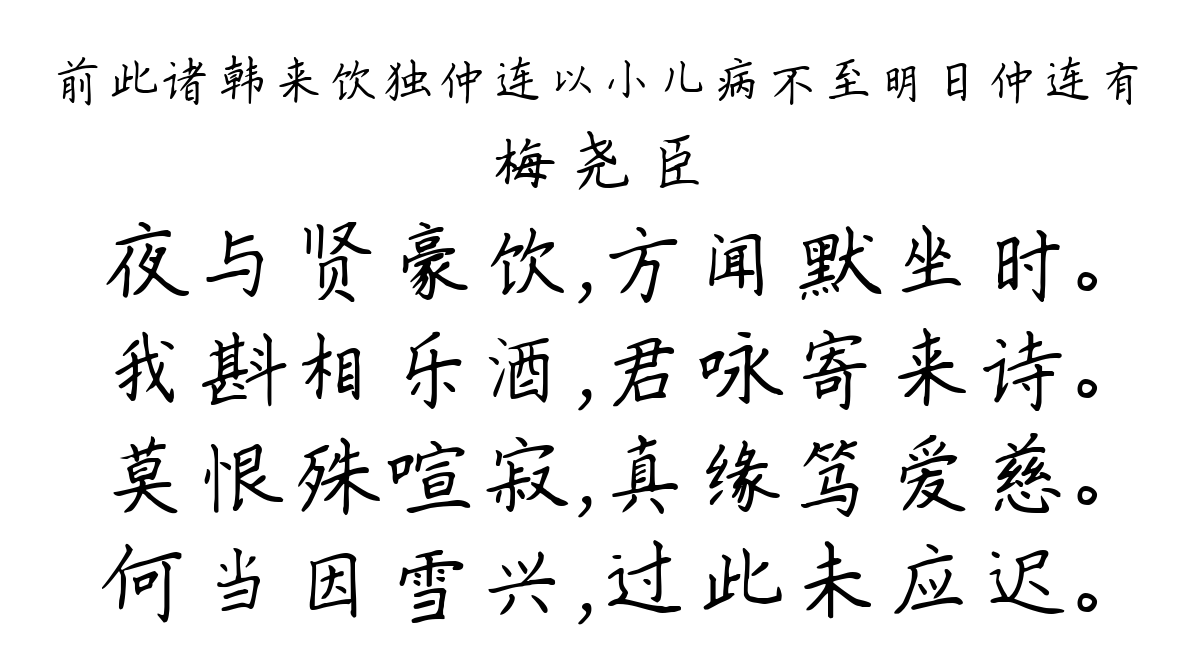 前此诸韩来饮独仲连以小儿病不至明日仲连有
梅尧臣
夜与贤豪饮,方闻默坐时。
我斟相乐酒,君咏寄来诗。
莫恨殊喧寂,真缘笃爱慈。
何当因雪兴,过此未应迟。